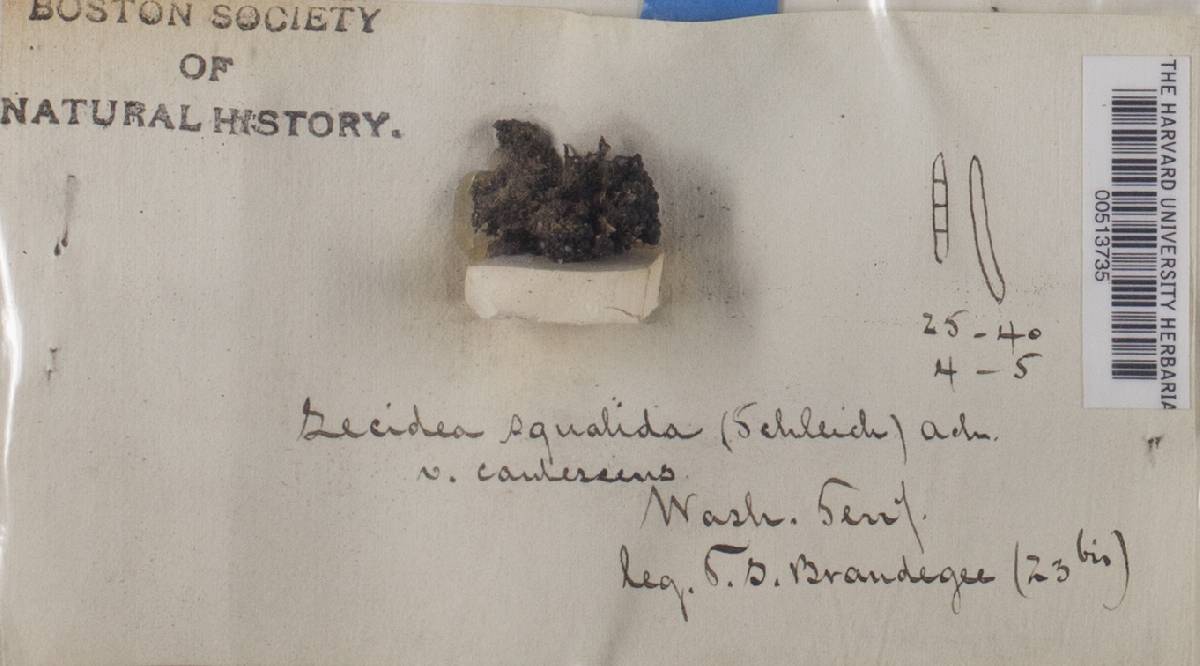 BOSTON SOCIETY
OF
NATURAL HISTORY.
THE HARVARD UNIVERSITY HERBARIA
00513735
25-40
4-5
Lecidea squalida (Schleich) ach.
v.
Wash. Terr'y.
leg. T.S. Brandegee (23 bis)